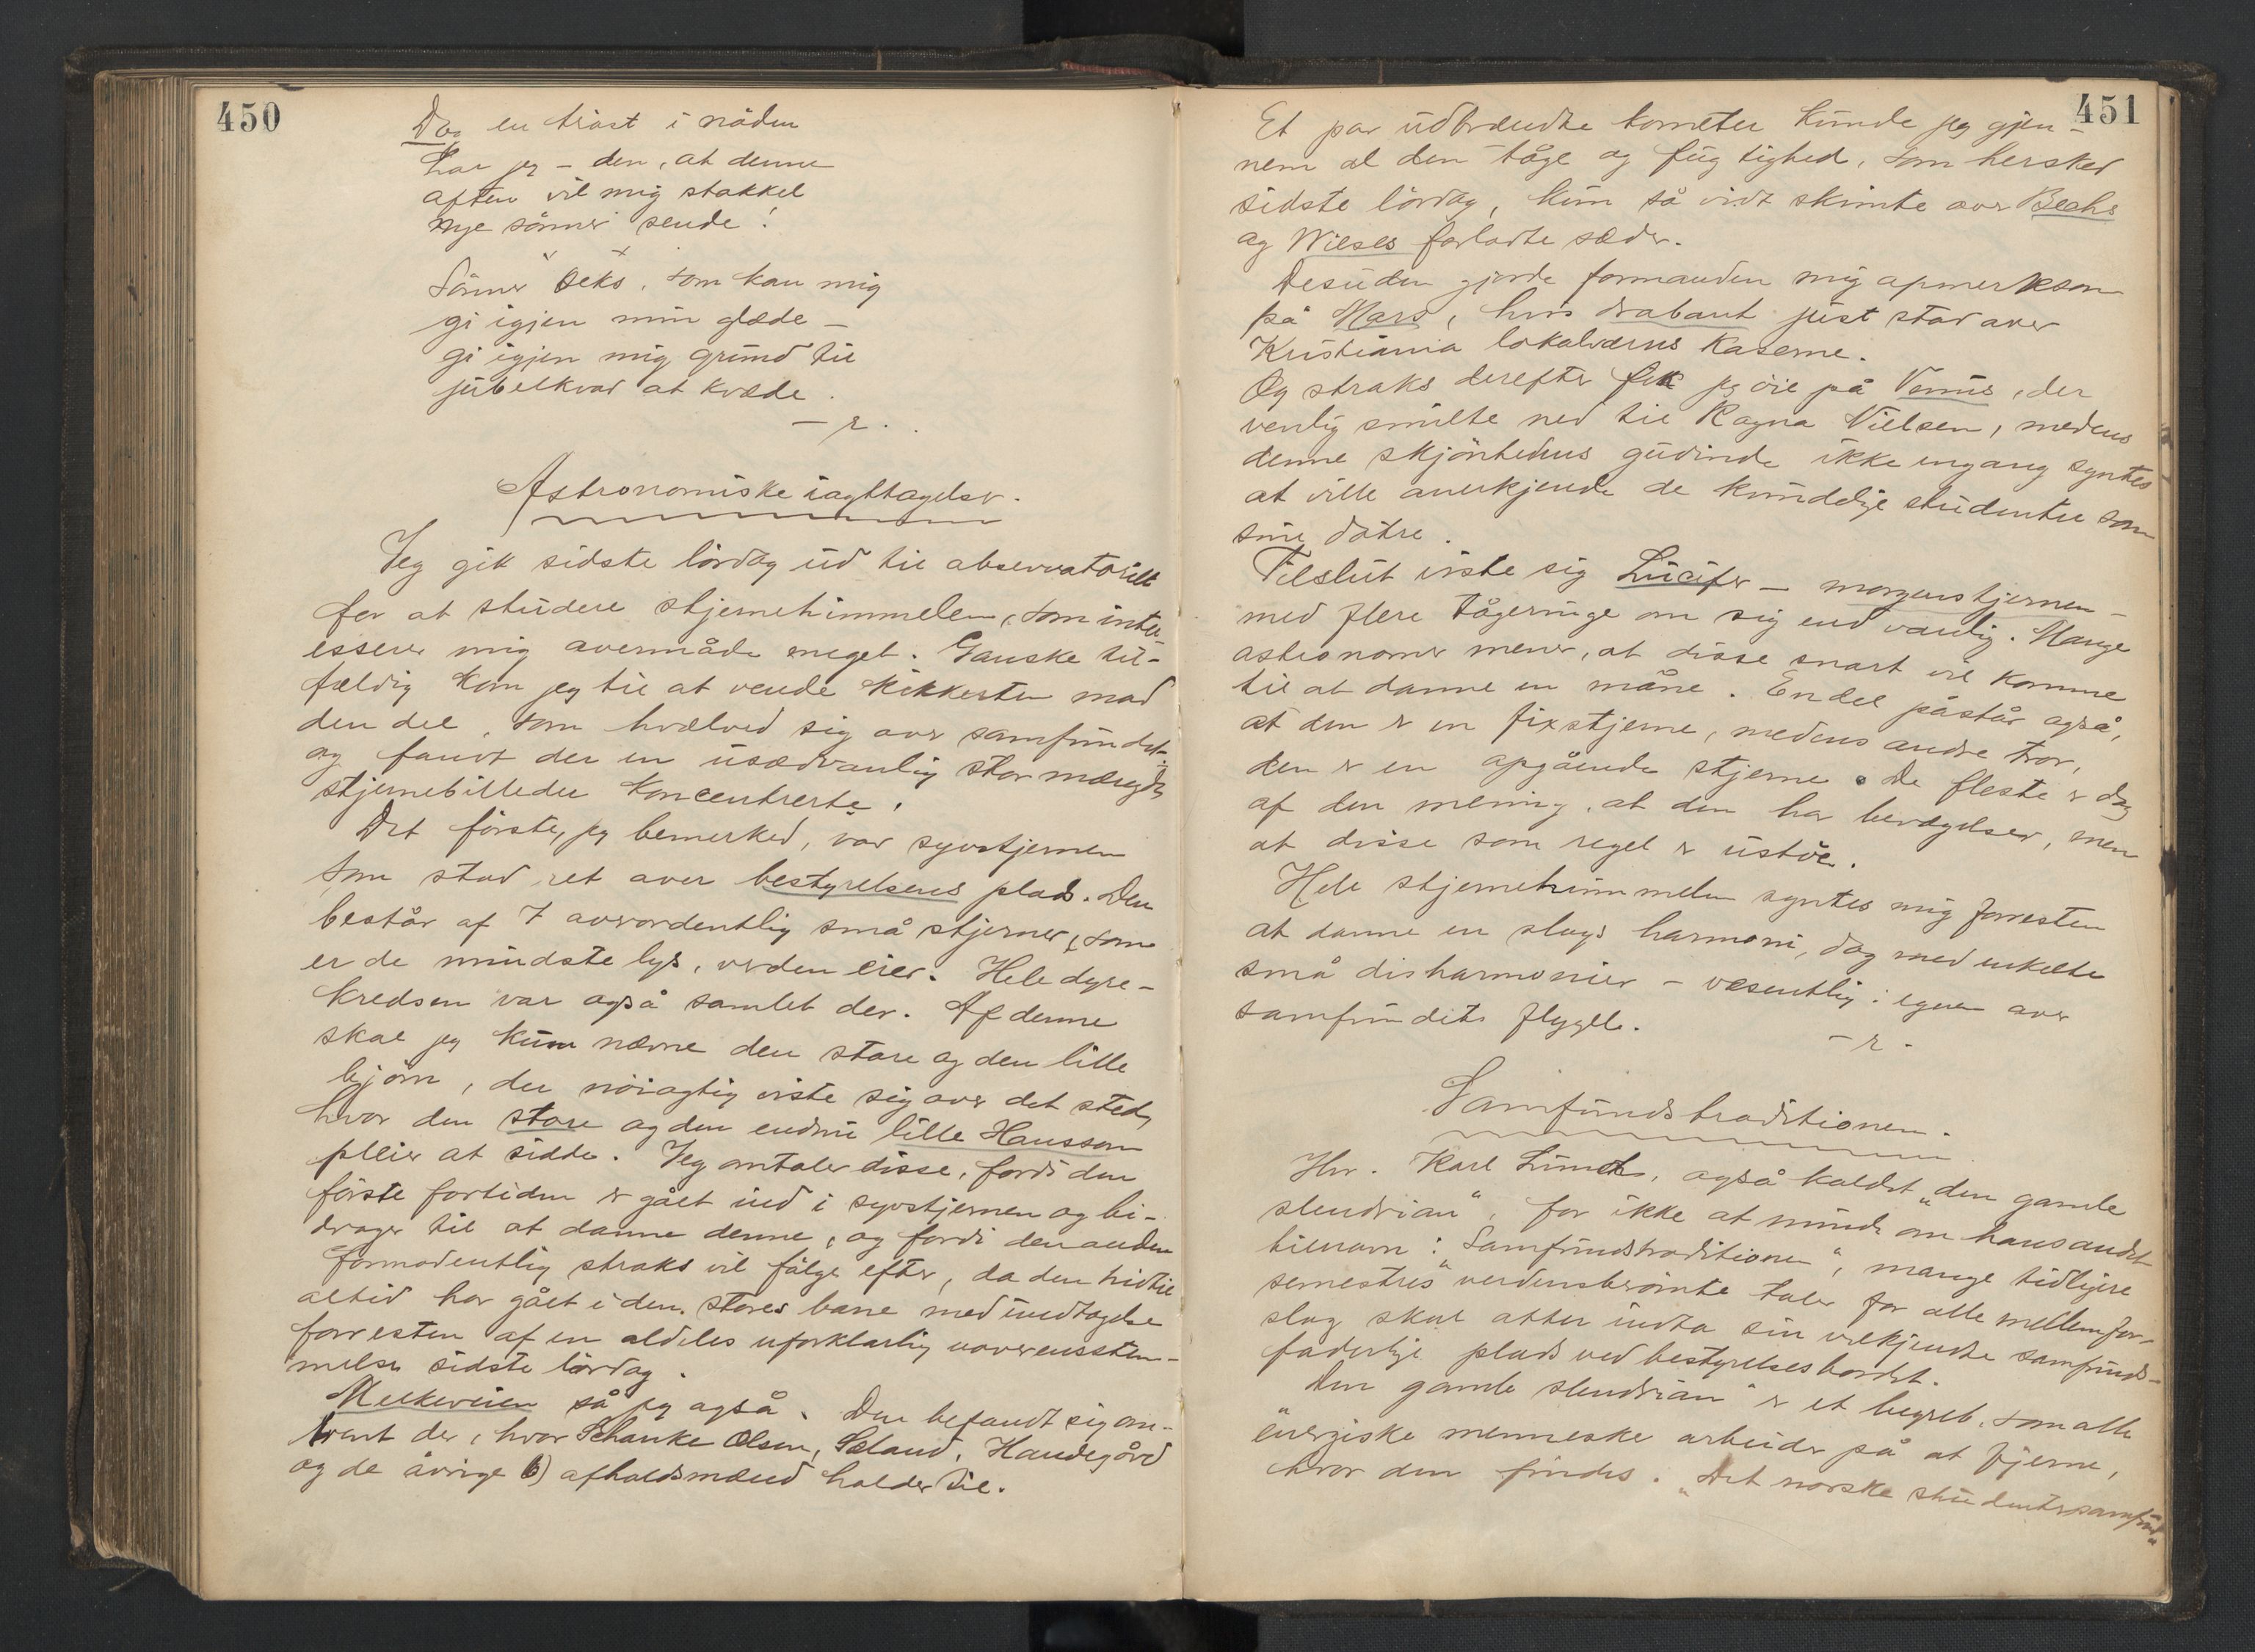 450
Dog en tröst i nöden
har jeg – den, at denne
aften vil mig stakkel
nye sönner sende!
Sönner seks, som kan mig
gi igjen min glæde –
gi igjen mig grund til
jubelkvad at kvæde.
– r.
Astronomiske iagttagelser.
Jeg gik sidste lördag ud til observatoriet
for at studere stjernehimmelen, som inter-
esserer mig overmåde meget. Ganske til-
fældig kom jeg til at vende kikkerten mod
den del, som hvælved sig over samfundet
og fandt der en usædvanlig stor mængde
stjernebilleder koncentrerte.
Det förste, jeg bemerked, var syvstjernen
som stod ret over bestyrelsens plads. Den
består af 7 overordentlig små stjerner, som
er de mindste lys, verden eier. Hele dyre-
kredsen var også samlet der. Af denne
skal jeg kun nævne den store og den lille
björn, der nöiagtig viste sig over det sted,
hvor den store og den endnu lille Hansson
pleier at sidde. Jeg omtaler disse, fordi den
förste fortiden er gået ind i syvstjernen og bi-
drager til at danne denne, og fordi den anden
formodentlig straks vil fölge efter, da den hidtil
altid har gået i den stores bane med undtagelse
forresten af en aldeles uforklarlig uoverensstem-
melse sidste lördag.
Melkeveien så jeg også. Den befandt sig om-
trent der, hvor Schanke Olsen, Sæland, Handegård
og de övrige 6) afholdsmænd holder til.
451
Et par udbrændte kometer kunde jeg gjen-
nem al den tåge og fugtighed, som hersked
sidste lördag, kun så vidt skimte over Bechs
og Wieses forladte sæder.
Desuden gjorde formanden mig opmerksom
på Mars, hvis drabant just stod over
Kristiania lokalværns kaserne.
Og straks derefter fik jeg öie på Venus, der
venlig smilte ned til Ragna Nielsen, medens
denne skjönhedens gudinde ikke engang syntes
at ville anerkjende de kvindelige studenter som
sine dötre.
Tilslut viste sig Lucifer – morgenstjernen –
med flere tågeringe om sig end vanlig. Mange
astronomer mener, at disse snart vil komme
til at danne en måne. En del påstår også,
at den er en fixstjerne, medens andre tror,
den er en opgående stjerne. De fleste er dog
af den mening, at den har bevægelser, men
at disse som regel er ustöe.
Hele stjernehimmelen syntes mig forresten
at danne en slags harmoni, dog med enkelte
små disharmonier – væsentlig i egnen over
samfundets flygel.
– r.
Samfundstraditionen.
Hr. Karl Lunch, også kaldet „den gamle
slendrian“, for ikke at minde om hans andet
tilnavn: „Samfundstraditionen“, mange tidligere
semestres verdensberömte taler for alle mellemfor-
slag skal atter indta sin velkjendte samfunds-
faderlige plads ved bestyrelsesbordet.
„Den gamle slendrian“ er et begreb, som alle
energiske menneske arbeider på at fjerne,
hvor den findes. „Det norske studentersamfund“